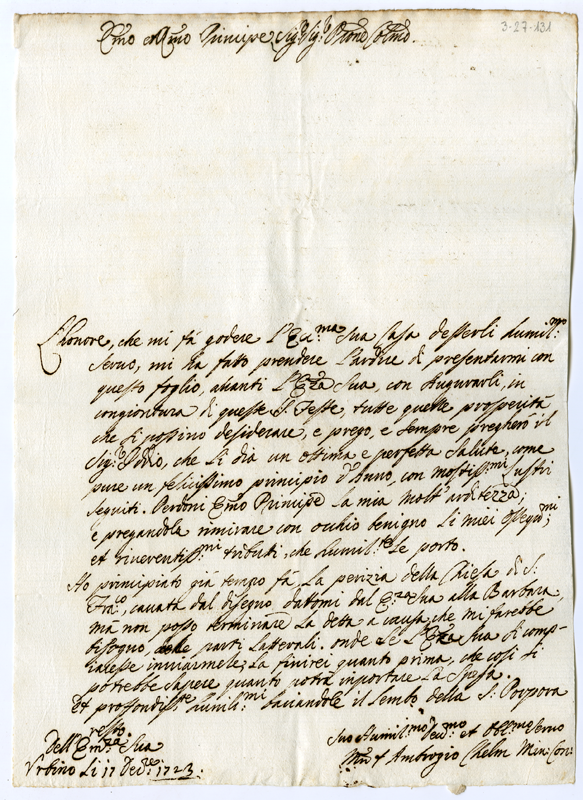 3-27-131
Em̃o e Rm̃o Principe Sig.r Sig.r Prone Colmo.
L'honore, che mi fà godere l'Ecc.ma Sua Casa d'esserli humil.mo
Servo, mi hà fatto prendere l'ardire di presentarmi con
questo foglio, avanti l'Em̃za Sua, con Augurarli, in
congiontura di queste S. Feste, tutte quelle prosperità
che si possino desiderare, e prego, e sempre pregherò il
Sig.r Iddio, che Li dia un ottima e perfetta salute, come
pure un felicissimo principio d'Anno, con moltiss.mi lustri
seguiti. Perdoni Em̃o Principe la mia molt'arditezza;
e pregandola rimirare con occhio benigno li miei ossequiosi.mi
et riverentiss.mi tributi, che humil.te Le porto.
Ho principiato già tempo fà La perizia della Chiesa di S.
Fra.co, cavata dal disegno dattomi dal Em̃za Sua alla Barbara,
mà non posso terminare La detta a causa che mi farebbe
bisogno, delle parti Latterali. onde se l'Em̃za Sua si comp-
iacesse inviarmele, La finirei quanto prima, che così si
potrebbe sapere quanto potrà importare La Spesa.
Et profondiss.te humil.mi baciandole il lembo della S. Porpora
resto.
Dell'Em̃.za Sua
Urbino Li 17 Decbre 1723:
Suo Humil.mo Dev.mo et Obl.mo Servo
Ambrogio Min: Con: